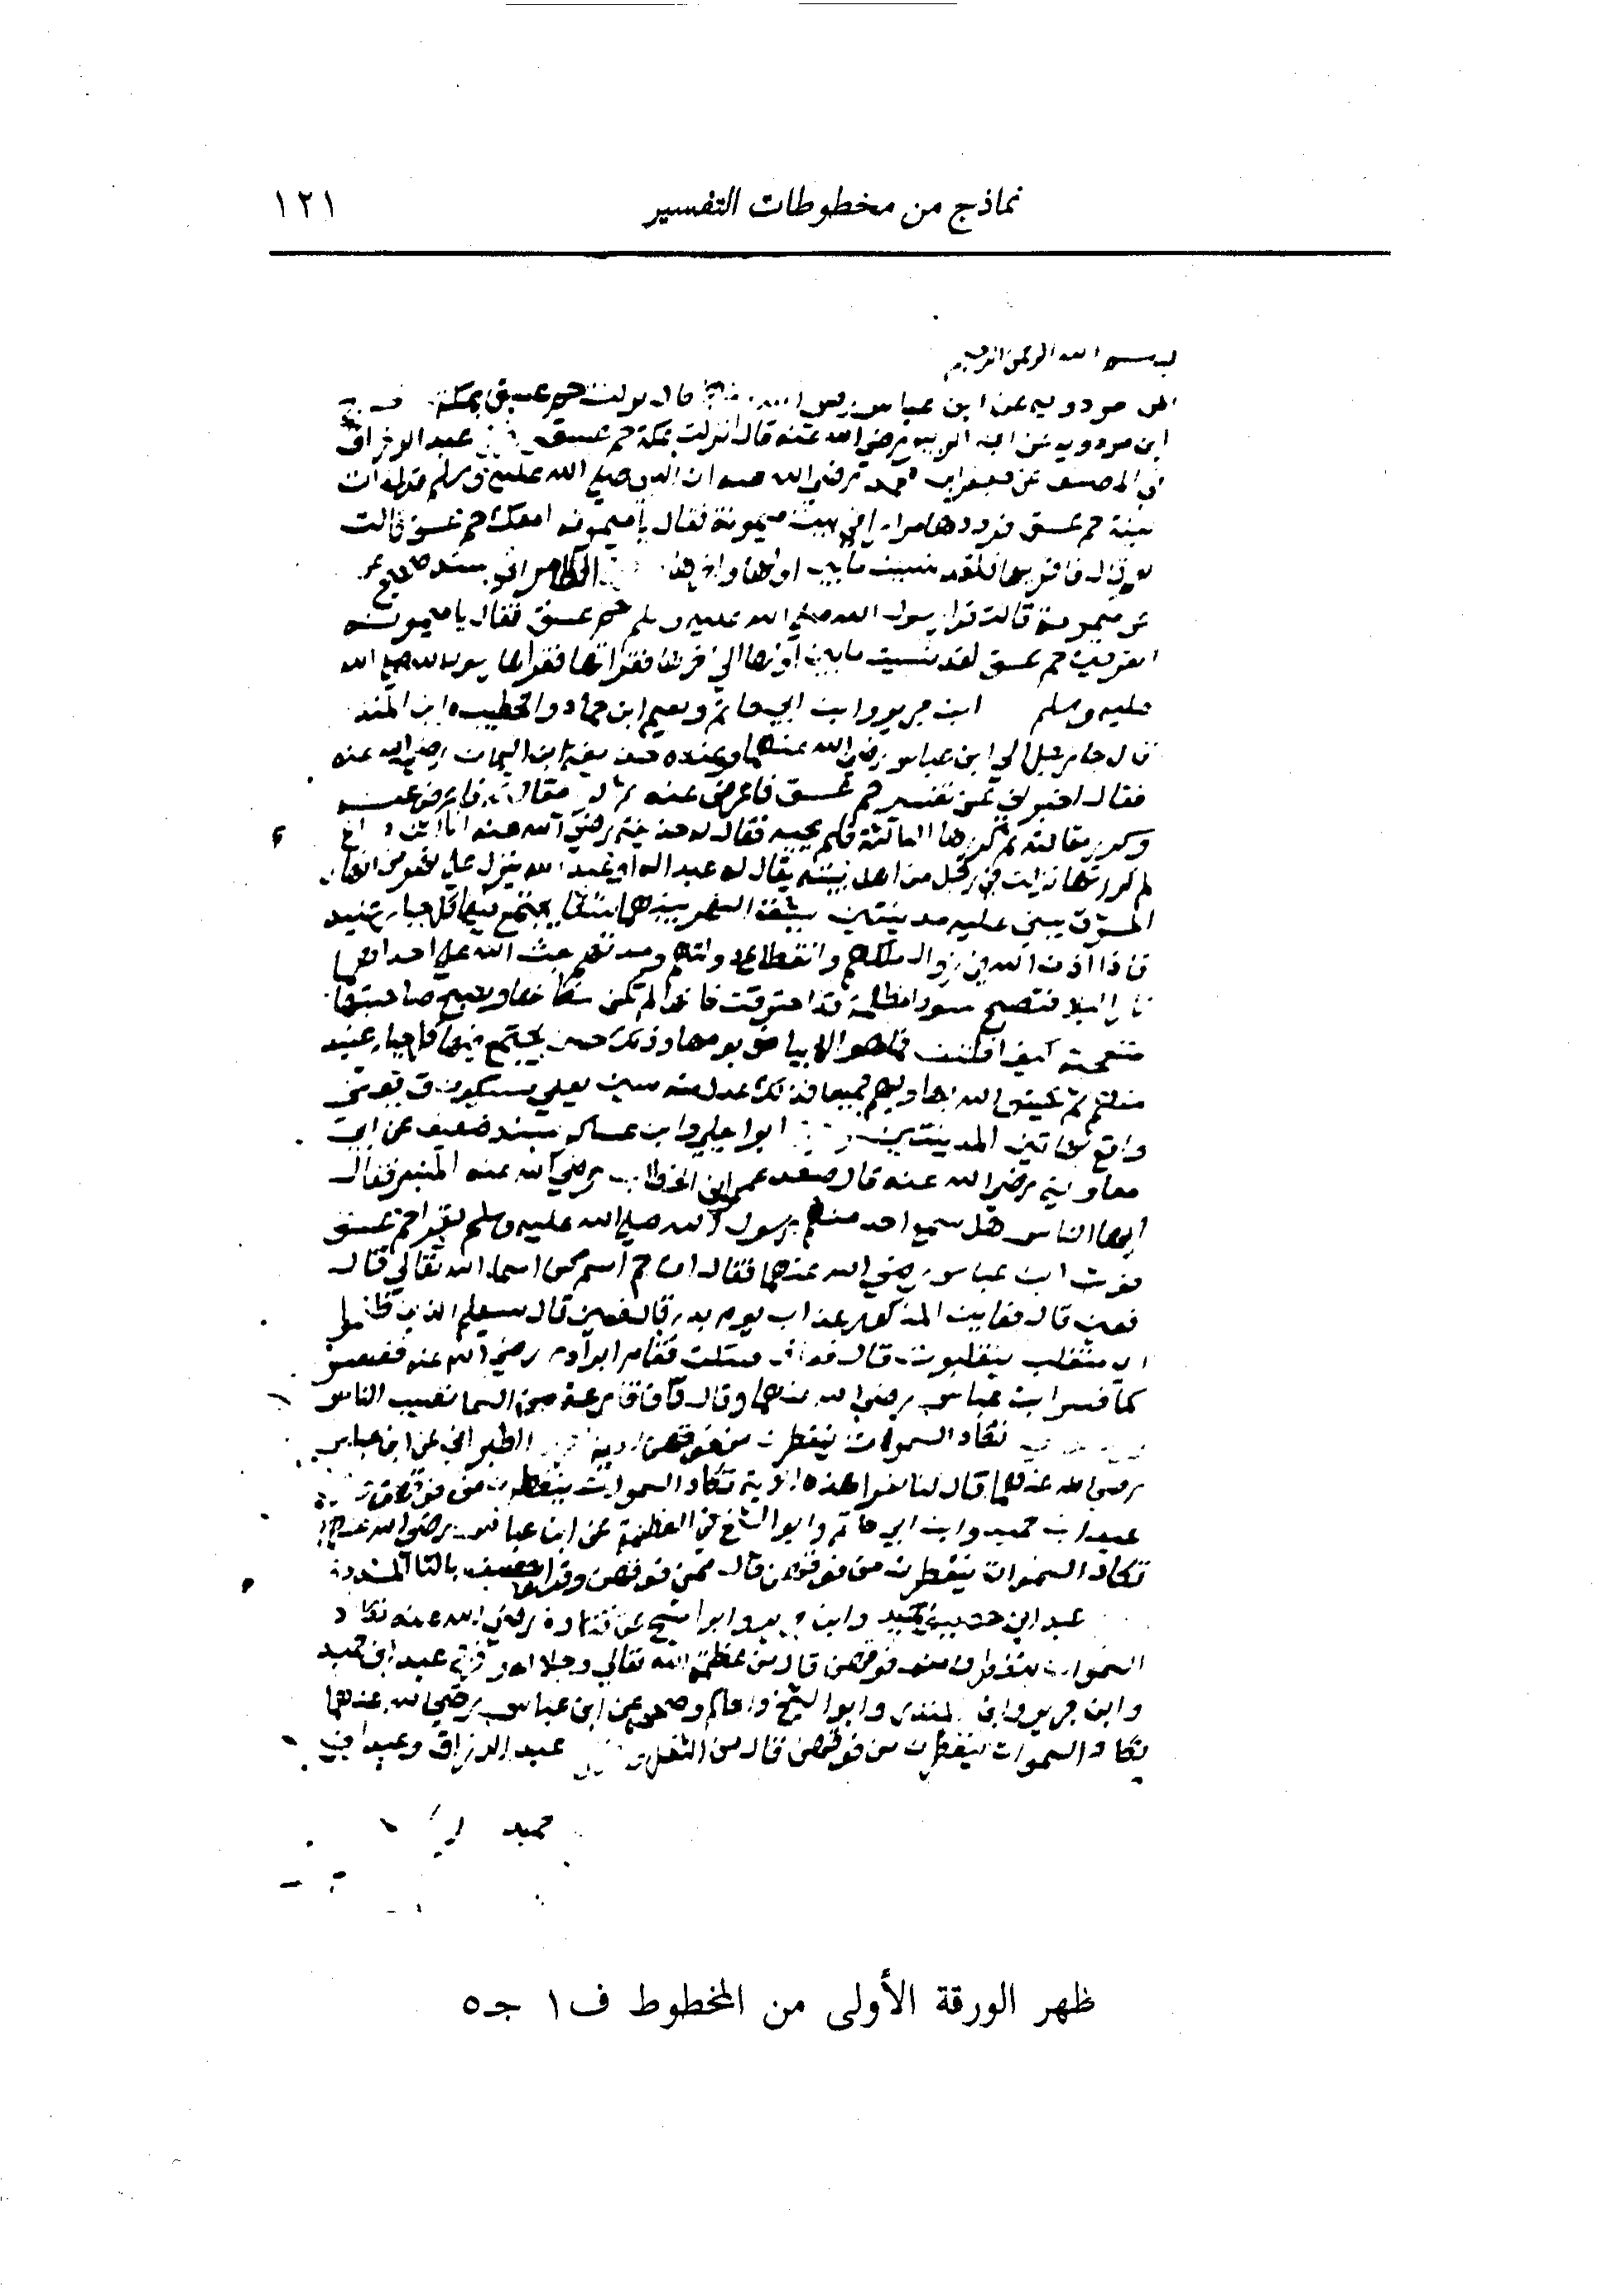 نماذج من مخطوطات التفسير ١٢١
بسم الله الرحمن الرحيم
ابن مردويه عن ابن عباس قال نزلت حم عسق بمكة
ابن مردويه عن ابن الزبير رضي الله عنه قال انزلت بمكة حم عسق عبد الرزاق
في المصنف عن رضي الله ان النبي صلى الله عليه وسلم
حم عسق فرددها مرارا في بيت ميمونة فقال يا ميمونه امعك حم عسق قالت
قال فاقريها فلقد نسيت ما بين اولها واخرها الطبراني بسند صحيح عن
عن ميمونة قالت قرا رسول الله صلى الله عليه وسلم حم عسق فقال يا ميمونه
اتعرفين حم عسق لقد نسيت ما بين اولها الى اخرها فقراتها فقراها رسول الله صلى الله
عليه وسلم ابن جرير وابن ابي حاتم ونعيم ابن حماد والخطيب ابن المنذر
قال جا رجل الي ابن عباس رضي الله عنهما وعنده حذيفة ابن اليمان رضي الله عنه
فقال اخبرني عن تفسير حم عسق فاعرض عنه ثم فاعرض عنه
وكرر مقالته ثم كررها الثالثة فلم يجبه فقال له حذيفة رضي الله عنه انا
لم كررتها نزلت في رجل من اهل بيته يقال له عبد اله او عبد الله ينزل علي نهر من انهار
المشرق يبني عليه مدينتين يشق النهر بينهما شقا يجتمع فيها كل جبار عنيد
فاذا اذن الله في زوال ملكهم وانقطاع دولتهم ومدتهم بعث الله علي احداهما
نارا ليلا فتصبح سودا مظلمة قد احترقت كانها لم تكن مكانها وتصبح صاحبتها
متعجبة كيف افلتت فما هو الا بياض يومها وذلك حتى يجتمع فيها كل جبار عنيد
منهم ثم يخسف الله بها وبهم جميعا فذلك عدل منه سين يعني سيكون ق
واقع لهاتين المدينتين ابوا يعلي وابن عساكر بسند ضعيف عن ابي
معاوية رضي الله عنه قال صعد عمر ابن الخطاب رضي الله عنه المنبر فقال
ايها الناس هل سمع احد منكم رسول الله صلي الله عليه وسلم يقرا حم عسق
فوثب ابن عباس رضي الله عنهما فقال ان حم اسم من اسما الله تعالي قال
فعين قال عاين المذكور عذاب يوم بدر قال فسين قال سيعلم الذين ظلموا
اي منقلب ينقلبون قال فقاف فسكت فقام ابو رضي الله عنه ففسر
كما فسر ابن عباس رضي الله عنهما وقال قاف قارعة من السما تصيب الناس
تكاد السموات يتفطرن من فوقهن الاية الطبراني عن ابن عباس
رضي الله عنهما قال هذه الاية تكاد السموات يتفطرن من فوقهن
عبد ابن حميد وابن ابي حاتم وابو الشيخ في العظمة عن ابن عباس رضي الله عنهما
تكاد السموات يتفطرن من فوقهن قال ممن فوقهن وقراها خصيف بالتا المشددة
عبد ابن حميد وابن جرير وابوا الشيخ عن قتادة رضي الله عنه تكاد
السموات يتفطرن من فوقهن قال من عظمة الله تعالي وجلاله عبد ابن حميد
وابن جرير وابن المنذر وابوا الشيخ والحاكم وصححه عن ابن عباس رضي الله عنهما
تكاد السموات يتفطرن من فوقهن قال من الثقل عبد الرزاق وعبد ابن
حميد
ظهر الورقة الأولى من المخطوط ف ١ جـ ٥